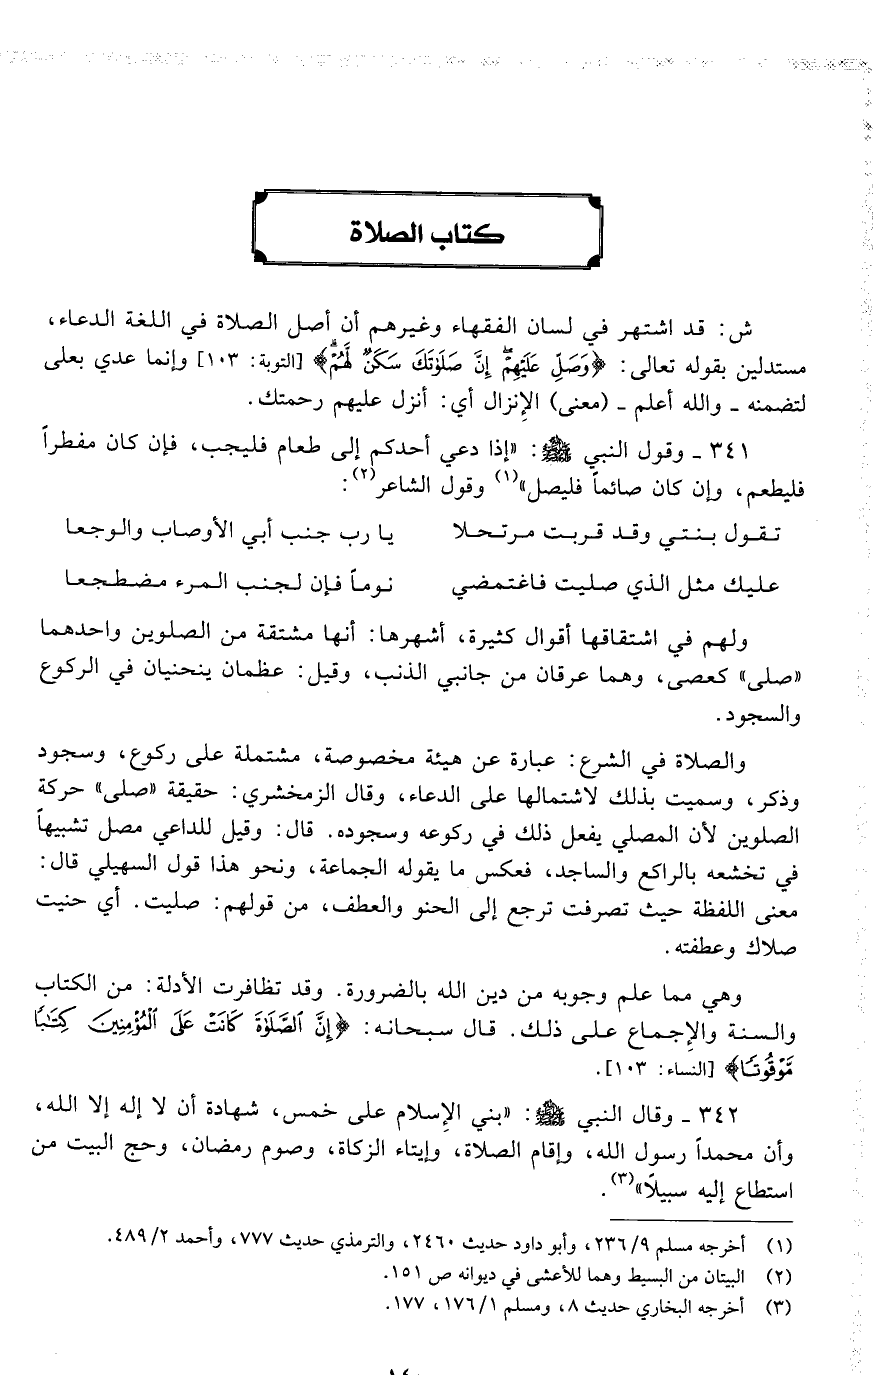 كتاب الصلاة
ش: قد اشتهر في لسان الفقهاء وغيرهم أن أصل الصلاة في اللغة الدعاء،
مستدلين بقوله تعالى: ﴿وَصَلِّ عَلَيْهِمْ ۖ إِنَّ صَلَوٰتَكَ سَكَنٌ لَّهُمْ ۗ﴾ [التوبة: ١٠٣] وإنما عدي بعلى
لتضمنه ـ والله أعلم ـ (معنى) الإنزال أي: أنزل عليهم رحمتك.
٣٤١ ـ وقول النبي ﷺ: «إذا دعي أحدكم إلى طعام فليجب، فإن كان مفطراً
فليطعم، وإن كان صائماً فليصل»(١) وقول الشاعر(٢):
تقول بنتي وقد قربت مرتحلا يا رب جنب أبي الأوصاب والوجعا
عليك مثل الذي صليت فاغتمضي نوماً فإن لجنب المرء مضطجعا
ولهم في اشتقاقها أقوال كثيرة، أشهرها: أنها مشتقة من الصلوين واحدهما
«صلى» كعصى، وهما عرقان من جانبي الذنب، وقيل: عظمان ينحنيان في الركوع
والسجود.
والصلاة في الشرع: عبارة عن هيئة مخصوصة، مشتملة على ركوع، وسجود
وذكر، وسميت بذلك لاشتمالها على الدعاء، وقال الزمخشري: حقيقة «صلى» حركة
الصلوين لأن المصلي يفعل ذلك في ركوعه وسجوده. قال: وقيل للداعي مصل تشبيهاً
في تخشعه بالراكع والساجد، فعكس ما يقوله الجماعة، ونحو هذا قول السهيلي قال:
معنى اللفظة حيث تصرفت ترجع إلى الحنو والعطف، من قولهم: صليت. أي حنيت
صلاك وعطفته.
وهي مما علم وجوبه من دين الله بالضرورة. وقد تظافرت الأدلة: من الكتاب
والسنة والإجماع على ذلك. قال سبحانه: ﴿إِنَّ ٱلصَّلَوٰةَ كَانَتْ عَلَى ٱلْمُؤْمِنِينَ كِتَـٰبًا
مَّوْقُوتًا﴾ [النساء: ١٠٣].
٣٤٢ ـ وقال النبي ﷺ: «بني الإسلام على خمس، شهادة أن لا إله إلا الله،
وأن محمداً رسول الله، وإقام الصلاة، وإيتاء الزكاة، وصوم رمضان، وحج البيت من
استطاع إليه سبيلًا»(٣).
(١) أخرجه مسلم ٢٣٦/٩، وأبو داود حديث ٢٤٦٠، والترمذي حديث ٧٧٧، وأحمد ٤٨٩/٢.
(٢) البيتان من البسيط وهما للأعشى في ديوانه ص ١٥١.
(٣) أخرجه البخاري حديث ٨، ومسلم ١٧٦/١، ١٧٧.